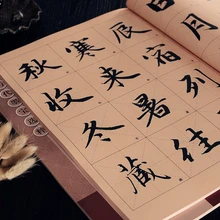 日月
辰宿列
寒来暑往
秋收冬藏